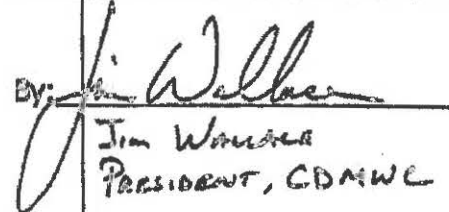 By: Jim Wallace
Jim Wallace
PRESIDENT, CDMWC